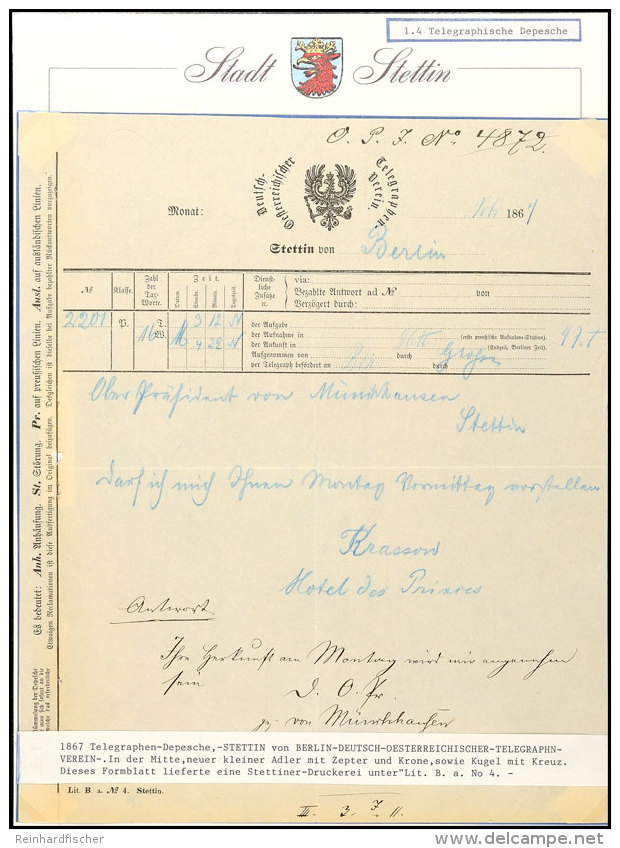 1.4 Telegraphische Depesche
Stadt Stettin
O. P. J. No. 4872.
Deutsch-Oesterreichischer Telegraphen-Verein.
Monat: 1867
Stettin von Berlin
№ Klasse. Zahl der Tax-Worte. Datum. Zeit. Stunde. Minute. Tageszeit. Dienstliche Zusätze &c. via:
Bezahlte Antwort ad № von
Verzögert durch:
2201 P. 16 T. W. 16 3 12 N der Aufgabe
der Aufnahme in (erste preußische Aufnahme-Station).
4 22 N der Ankunft in (Endzeit, Berliner Zeit).
Aufgenommen von durch
per Telegraph befördert an durch
Ober Präsident von Münchhausen
Stettin
darf ich mich Ihnen Montag Vormittag vorstellen
Krassow
Hotel des Princes
Antwort
Ihre Herkunft am Montag wird mir angenehm
sein
D. O. Pr.
gz. von Münchhausen
Es bedeutet: Anh. Anhäufung. St. Störung. Pr. auf preußischen Linien. Ausl. auf ausländischen Linien.
Etwaigen Reclamationen ist diese Ausfertigung im Original beizufügen. Desgleichen ist dieselbe bei Aufgabe bezahlter Rückantworten vorzuzeigen.
1867 Telegraphen-Depesche,-STETTIN von BERLIN-DEUTSCH-OESTERREICHISCHER-TELEGRAPHN-
VEREIN-.In der Mitte,neuer kleiner Adler mit Zepter und Krone,sowie Kugel mit Kreuz.
Dieses Formblatt lieferte eine Stettiner-Druckerei unter"Lit. B. a. No 4. -
Lit. B. a. № 4. Stettin.
III. 3. 7. 11.
Reinhardfischer
delcampe.net